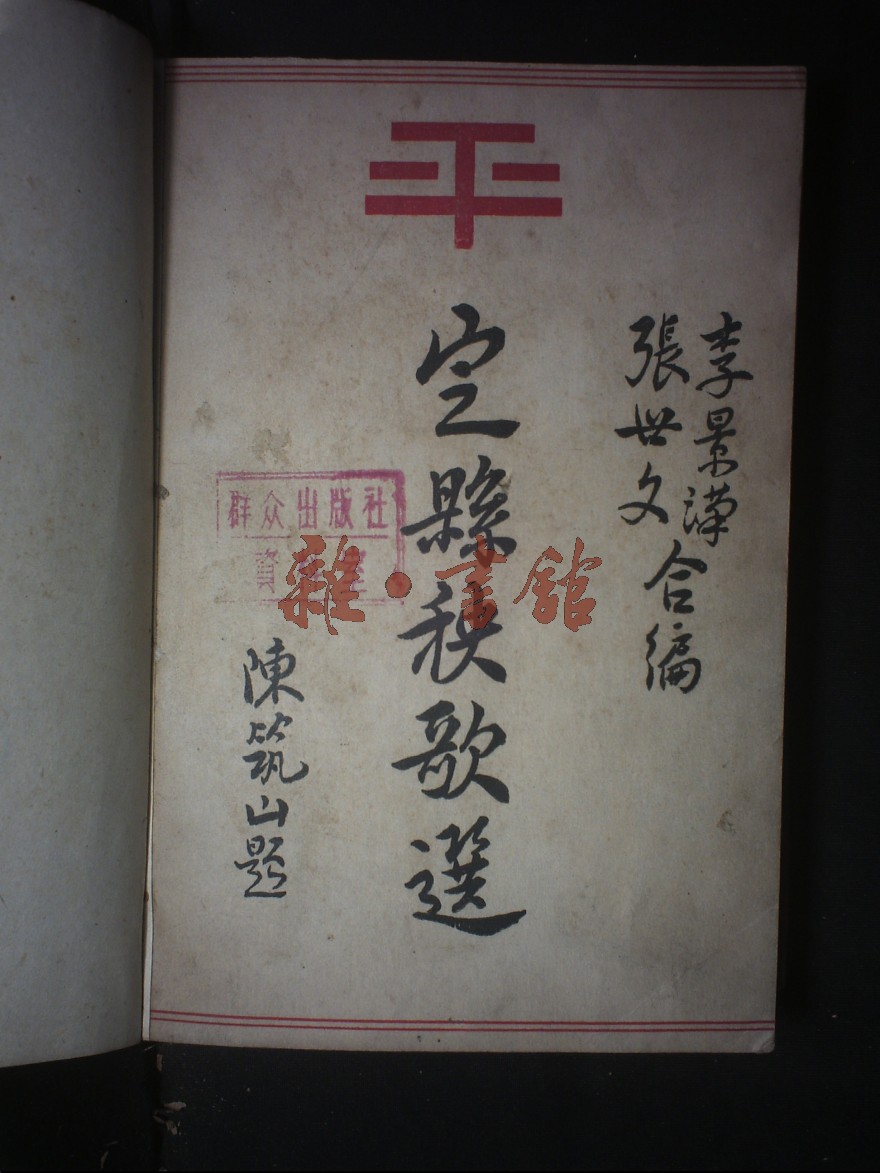 李景漢
張世文
合編
定縣秧歌選
陳筑山題
群众出版社
資料室
雜·書館